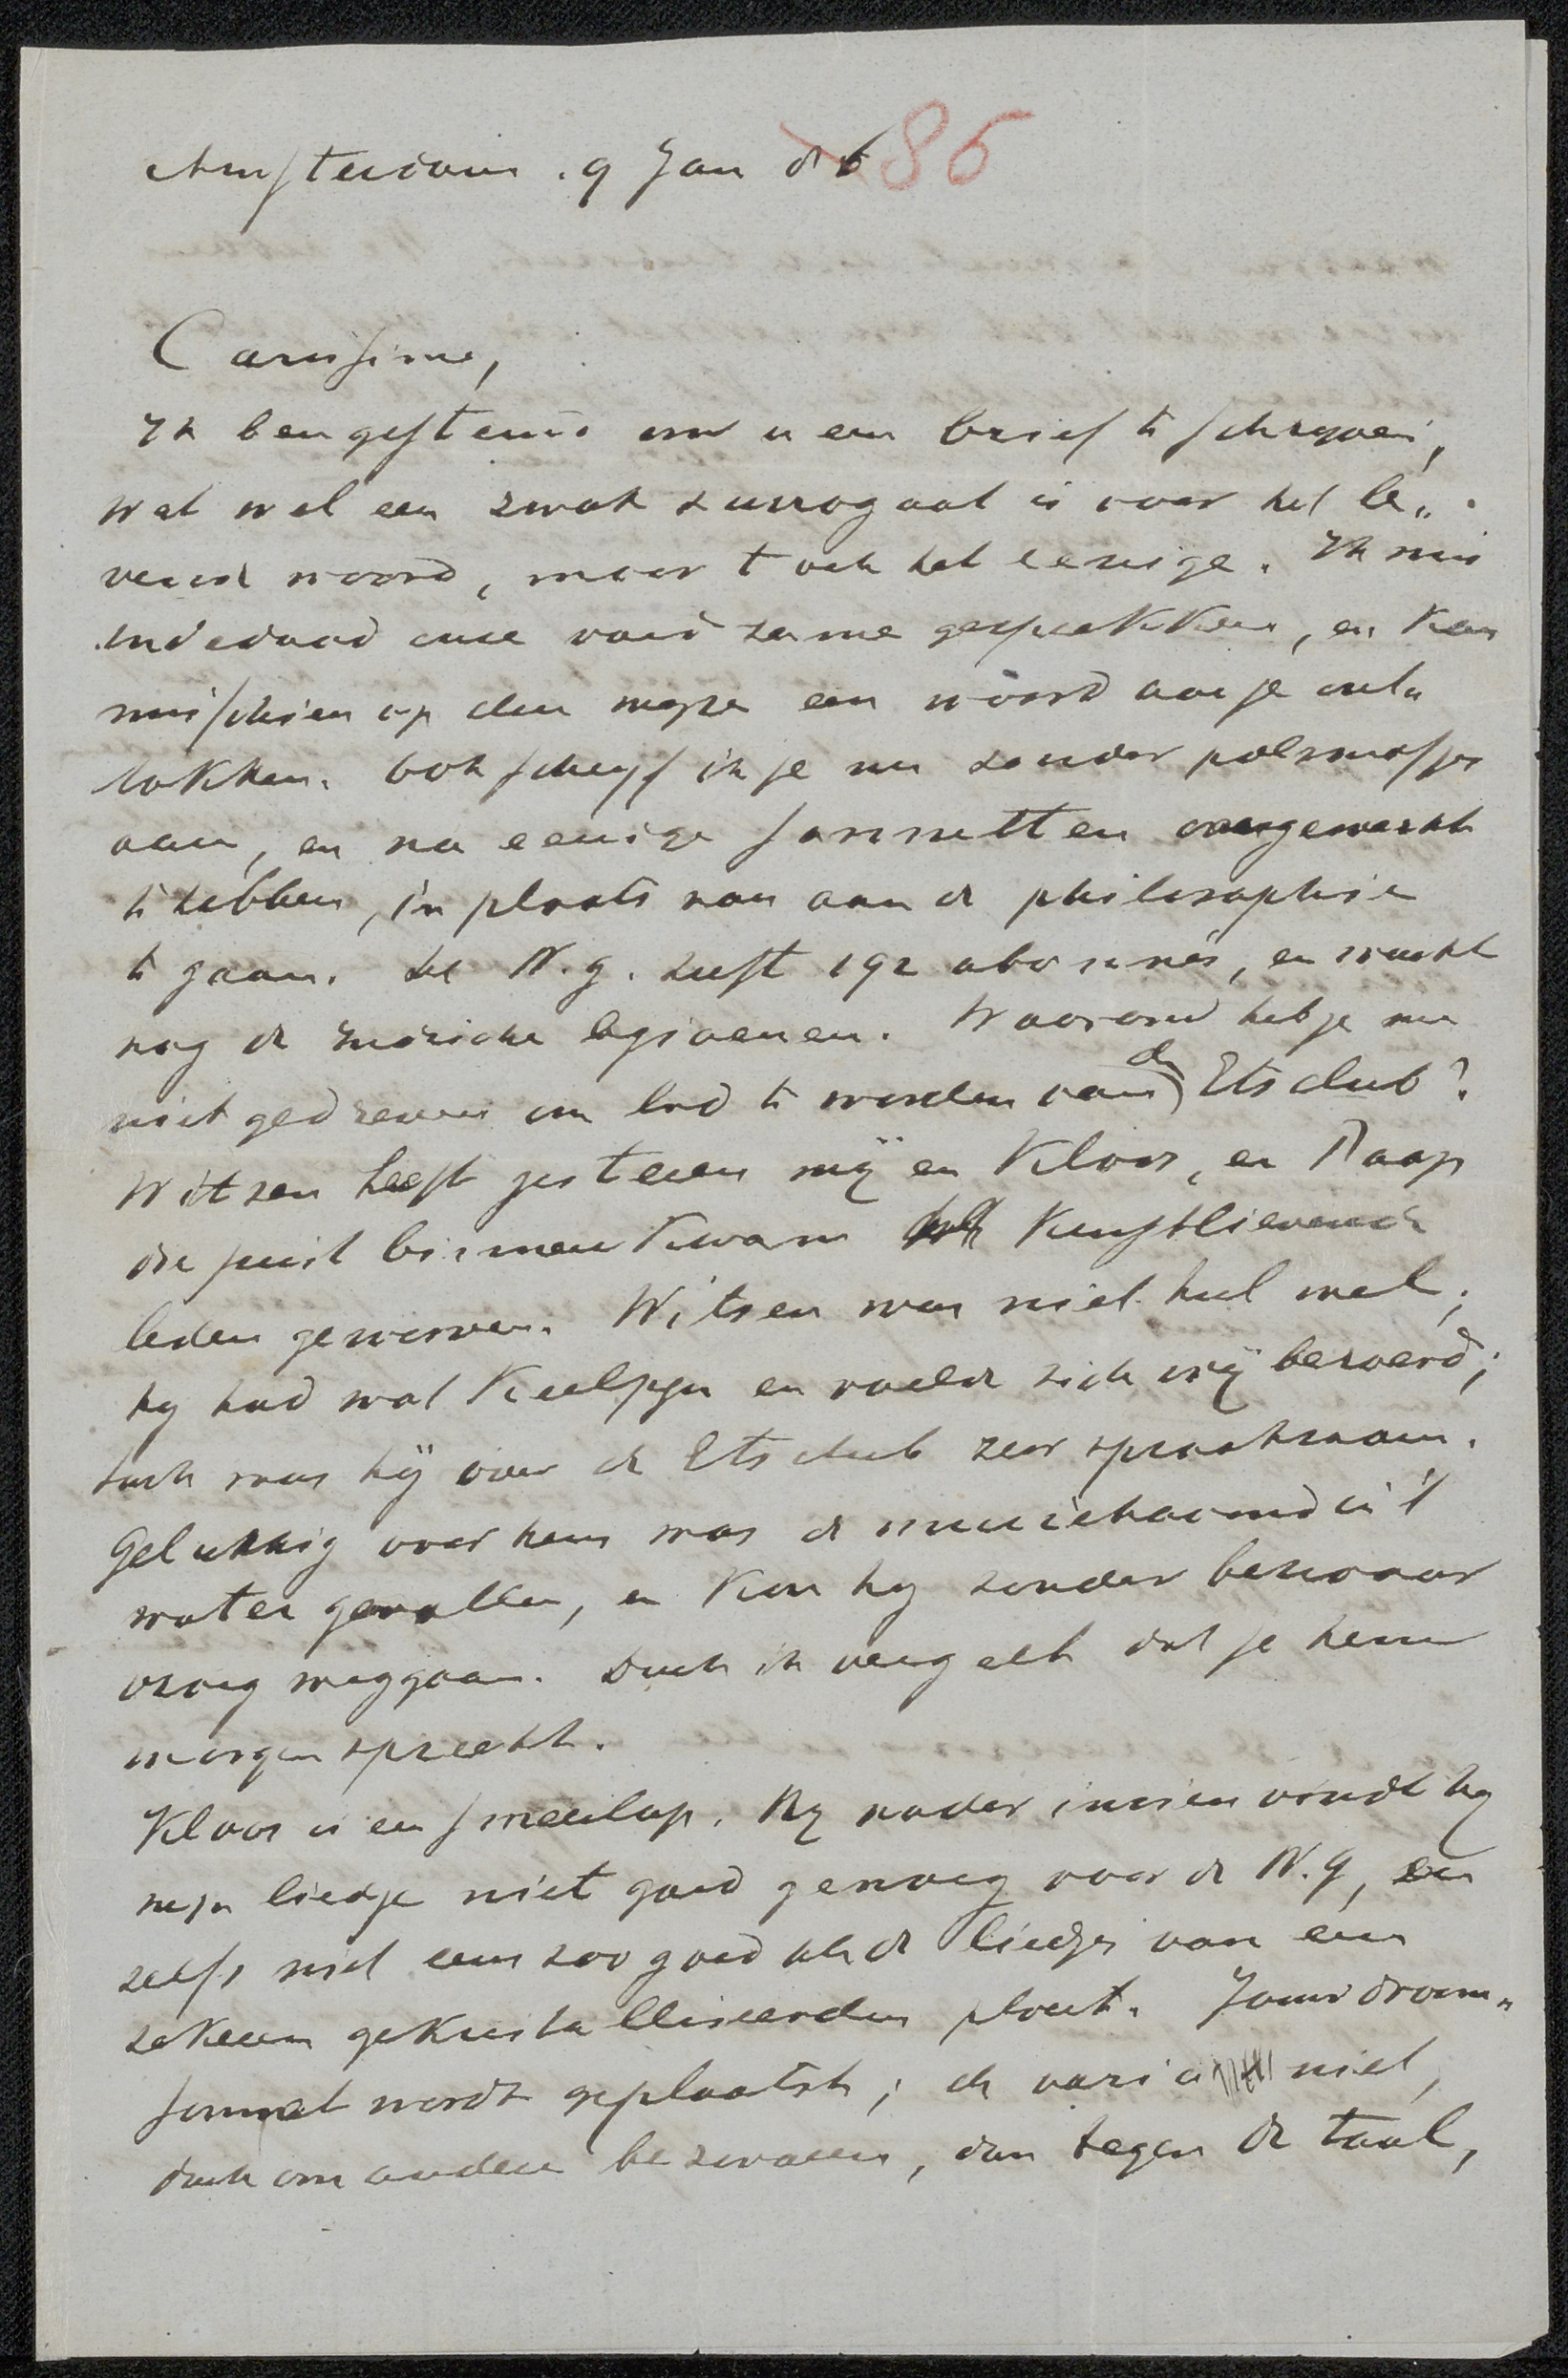 Amsterdam. 9 Jan 86 86
Carissime,
Ik ben gestemd om u een brief te schrijven,
wat wel een zwak surrogaat is voor het le„
vend woord, maar toch het eenige. Ik mis
inderdaad onze voedzame gesprekken, en kan
misschien op deze wijze een woord aan je ont„
lokken. Ook schrijf ik je nu zonder polsmofjes
aan, en na eenige sonnetten overgewerkt
te hebben, in plaats van aan de philosophie
te gaan. De N.g. heeft 192 abonnés, en wacht
nog de Indische legioenen. Waarom heb je me
niet gedreven om lid te worden van de Etsclub?
Witsen heeft gisteren mij en Kloos, en Paap
die juist binnen kwam tot Kunstlievende
leden geworven. Witsen was niet heel wel;
hij had wat Keelpijn en voelde zich vrij beroerd;
toch was hij over de Etsclub zeer spraakzaam.
Gelukkig voor hem was de muziekavond in 't
water gevallen, en kon hij zonder bezwaar
vroeg weggaan. Doch ik vergeet dat je hem
morgen spreekt.
Kloos is een smeerlap. Bij nader inzien vindt hij
mijn liedje niet goed genoeg voor de N.g, en
zelfs niet eens zoo goed als de liedjes van een
zekeren gekristalliseerden ploert. Jouw droom„
sonnet wordt geplaatst; de varia niet,
doch om andere bezwaren, dan tegen de taal,